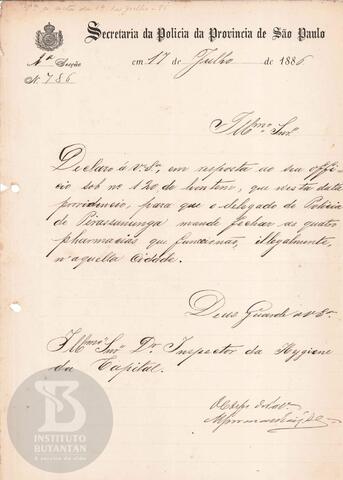 Secretaria da Policia da Provincia de São Paulo
4ª Secção
em 17 de Julho de 1886
N. 786
Illmo. Snr.
Declaro á V. Sª, em resposta ao seu offi-
cio sob nº 120, de hontem, que nesta data
providencio, para que o delegado de Policia
de Pirassununga mande fechar as quatro
pharmacias que funccionão, illegalmente
n'aquella cidade.
Deus Guarde a V. Sª.
Illmo. Snr. Dr. Inspector da Hygiene
da Capital.
O Chefe de
INSTITUTO
BUTANTAN
A serviço da vida